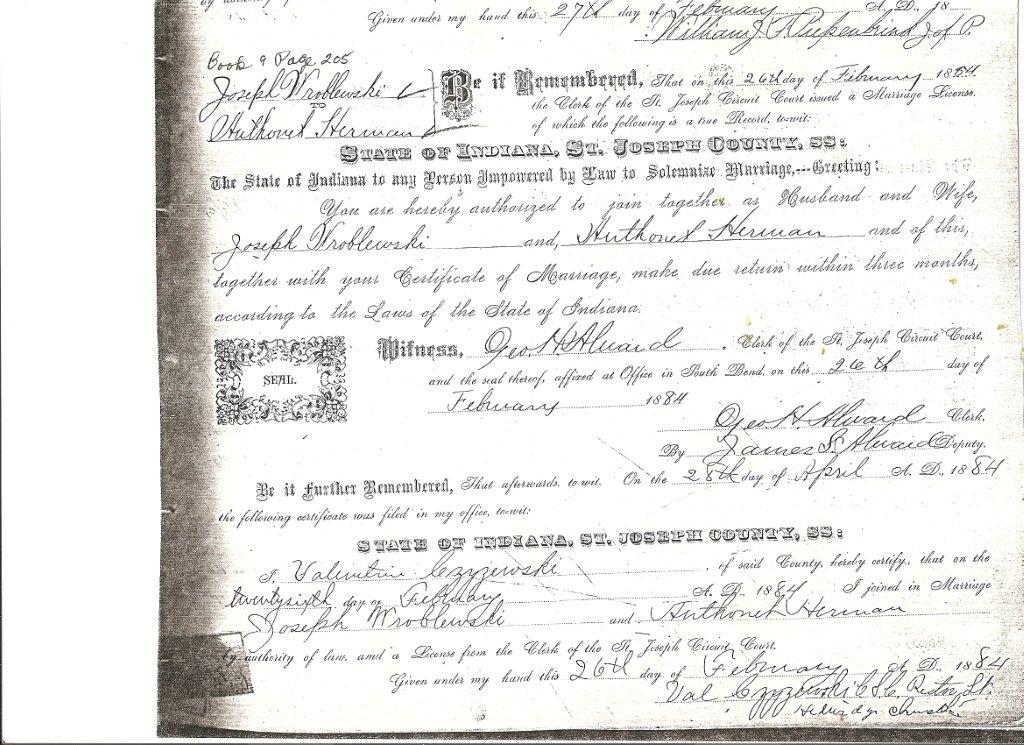 Given under my hand this 27th day of February A. D. 18
William J. of P.
Book 9 Page 205
Joseph Wroblewski
TO
Anthonet Herman
Be it Remembered, That on this 26th day of February 1884
the Clerk of the St. Joseph Circuit Court issued a Marriage License,
of which the following is a true Record, to-wit:
STATE OF INDIANA, ST. JOSEPH COUNTY, SS:
The State of Indiana to any Person Impowered by Law to Solemnize Marriage,--Greeting:
You are hereby authorized to join together as Husband and Wife,
Joseph Wroblewski and, Anthonet Herman and of this,
together with your Certificate of Marriage, make due return within three months,
according to the Laws of the State of Indiana.
SEAL.
Witness, Geo. H. Alward, Clerk of the St. Joseph Circuit Court,
and the seal thereof, affixed at Office in South Bend, on this 26th day of
February 1884
Geo H. Alward Clerk.
By James S. Alward Deputy.
Be it Further Remembered, That afterwards, to-wit: On the 28th day of April A. D., 1884
the following certificate was filed in my office, to-wit:
STATE OF INDIANA, ST. JOSEPH COUNTY, SS:
I, Valentine Czyzewski, of said County, hereby certify, that on the
twentysixth day of February A. D. 1884, I joined in Marriage
Joseph Wroblewski and Anthonet Herman
by authority of law, and a License from the Clerk of the St. Joseph Circuit Court.
Given under my hand this 26th day of February A. D. 1884
Val Czyzewski C.S.C. Rector St.
Hedwidge Church